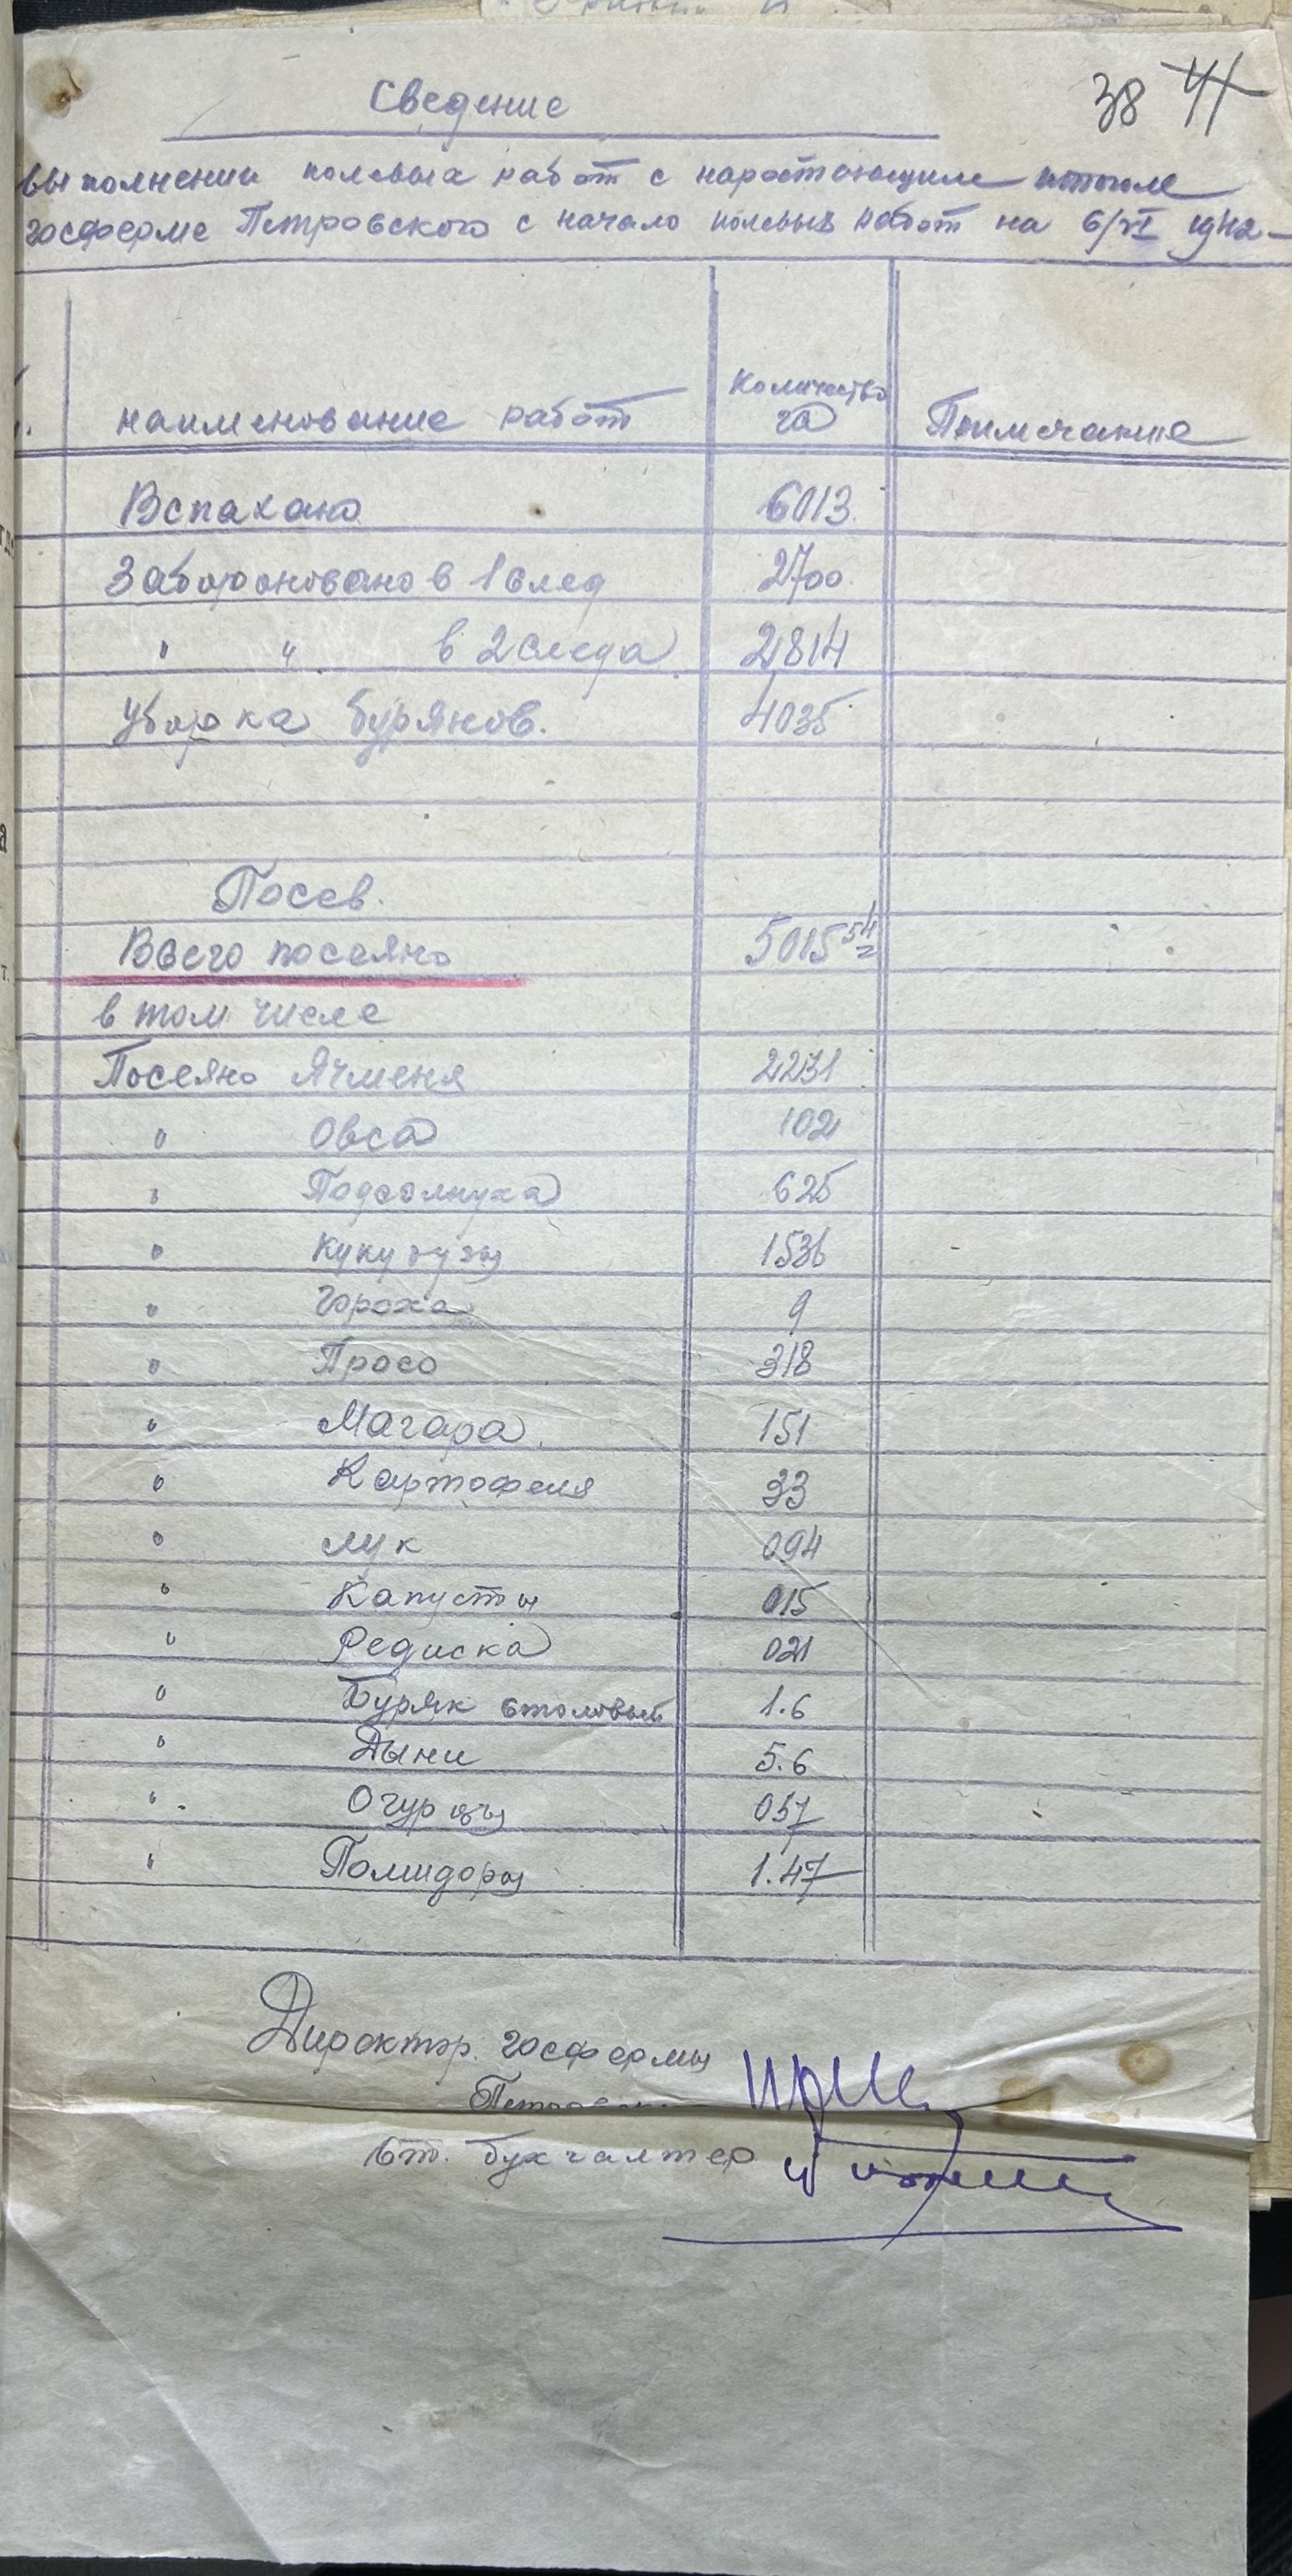 38 41
Сведение
выполнении полевых работ с наростающим итогом
госферме Петровского с начало полевых работ на 6/VI 1942
наименование работ Количество га Примечание
Вспахано 6013
Забороновано в 1 след 2700
" " в 2 следа 2814
Уборка бурянов. 4035
Посев.
Всего посеяно 5015 54
в том числе
Посеяно Ячменя 2231
" Овса 102
" Подсолнуха 625
" Кукурузы 1536
" Гороха 9
" Просо 318
" Магара 151
" Картофеля 33
" Лук 094
" Капусты 015
" Редиска 021
" Буряк столовый 1.6
" Дыни 5.6
" Огурцы 057
" Помидоры 1.47
Директор госфермы
Ст. бухгалтер